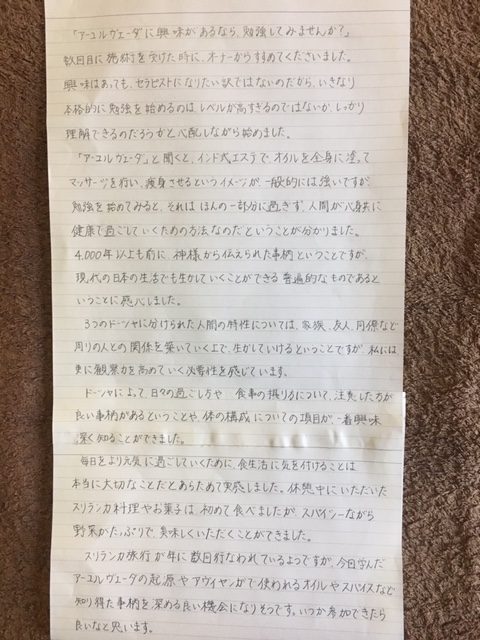 「アーユルヴェーダに興味があるなら、勉強してみませんか?」
数回目に施術を受けた時に、オーナーからすすめてくださいました。
興味はあっても、セラピストになりたい訳ではないのだから、いきなり
本格的に勉強を始めるのは、レベルが高すぎるのではないか、しっかり
理解できるのだろうかと心配しながら始めました。
「アーユルヴェーダ」と聞くと、インド式エステで、オイルを全身に塗って
マッサージを行い、痩身させるというイメージが、一般的には強いですが、
勉強を始めてみると、それはほんの一部分に過ぎず、人間が心身共に
健康で過ごしていくための方法なのだということが分かりました。
4,000年以上も前に神様から伝えられた事柄ということですが、
現代の日本の生活でも生かしていくことができる普遍的なものであると
いうことに感心しました。
3つのドーシャに分けられた人間の特性については、家族、友人、同僚など
周りの人との関係を築いていく上で、生かしていけるということですが、私には
更に観察力を高めていく必要性を感じています。
ドーシャによって、日々の過し方や、食事の摂り方について、注意した方が
良い事柄があるということや、体の構成についての項目が、一番興味
深く知ることができました。
毎日をより元気に過ごしていくために、食生活に気を付けることは
本当に大切なことだとあらためて実感しました。休憩中にいただいた
スリランカ料理やお菓子は、初めて食べましたが、スパイシーながら
野菜がたっぷりで、美味しくいただくことができました。
スリランカ旅行が年に数回行なわれているようですが、今日学んだ
アーユルヴェーダの起源やアウィヤンガで使われるオイルやスパイスなど
知り得た事柄を深める良い機会になりそうです。いつか参加できたら
良いなと思います。